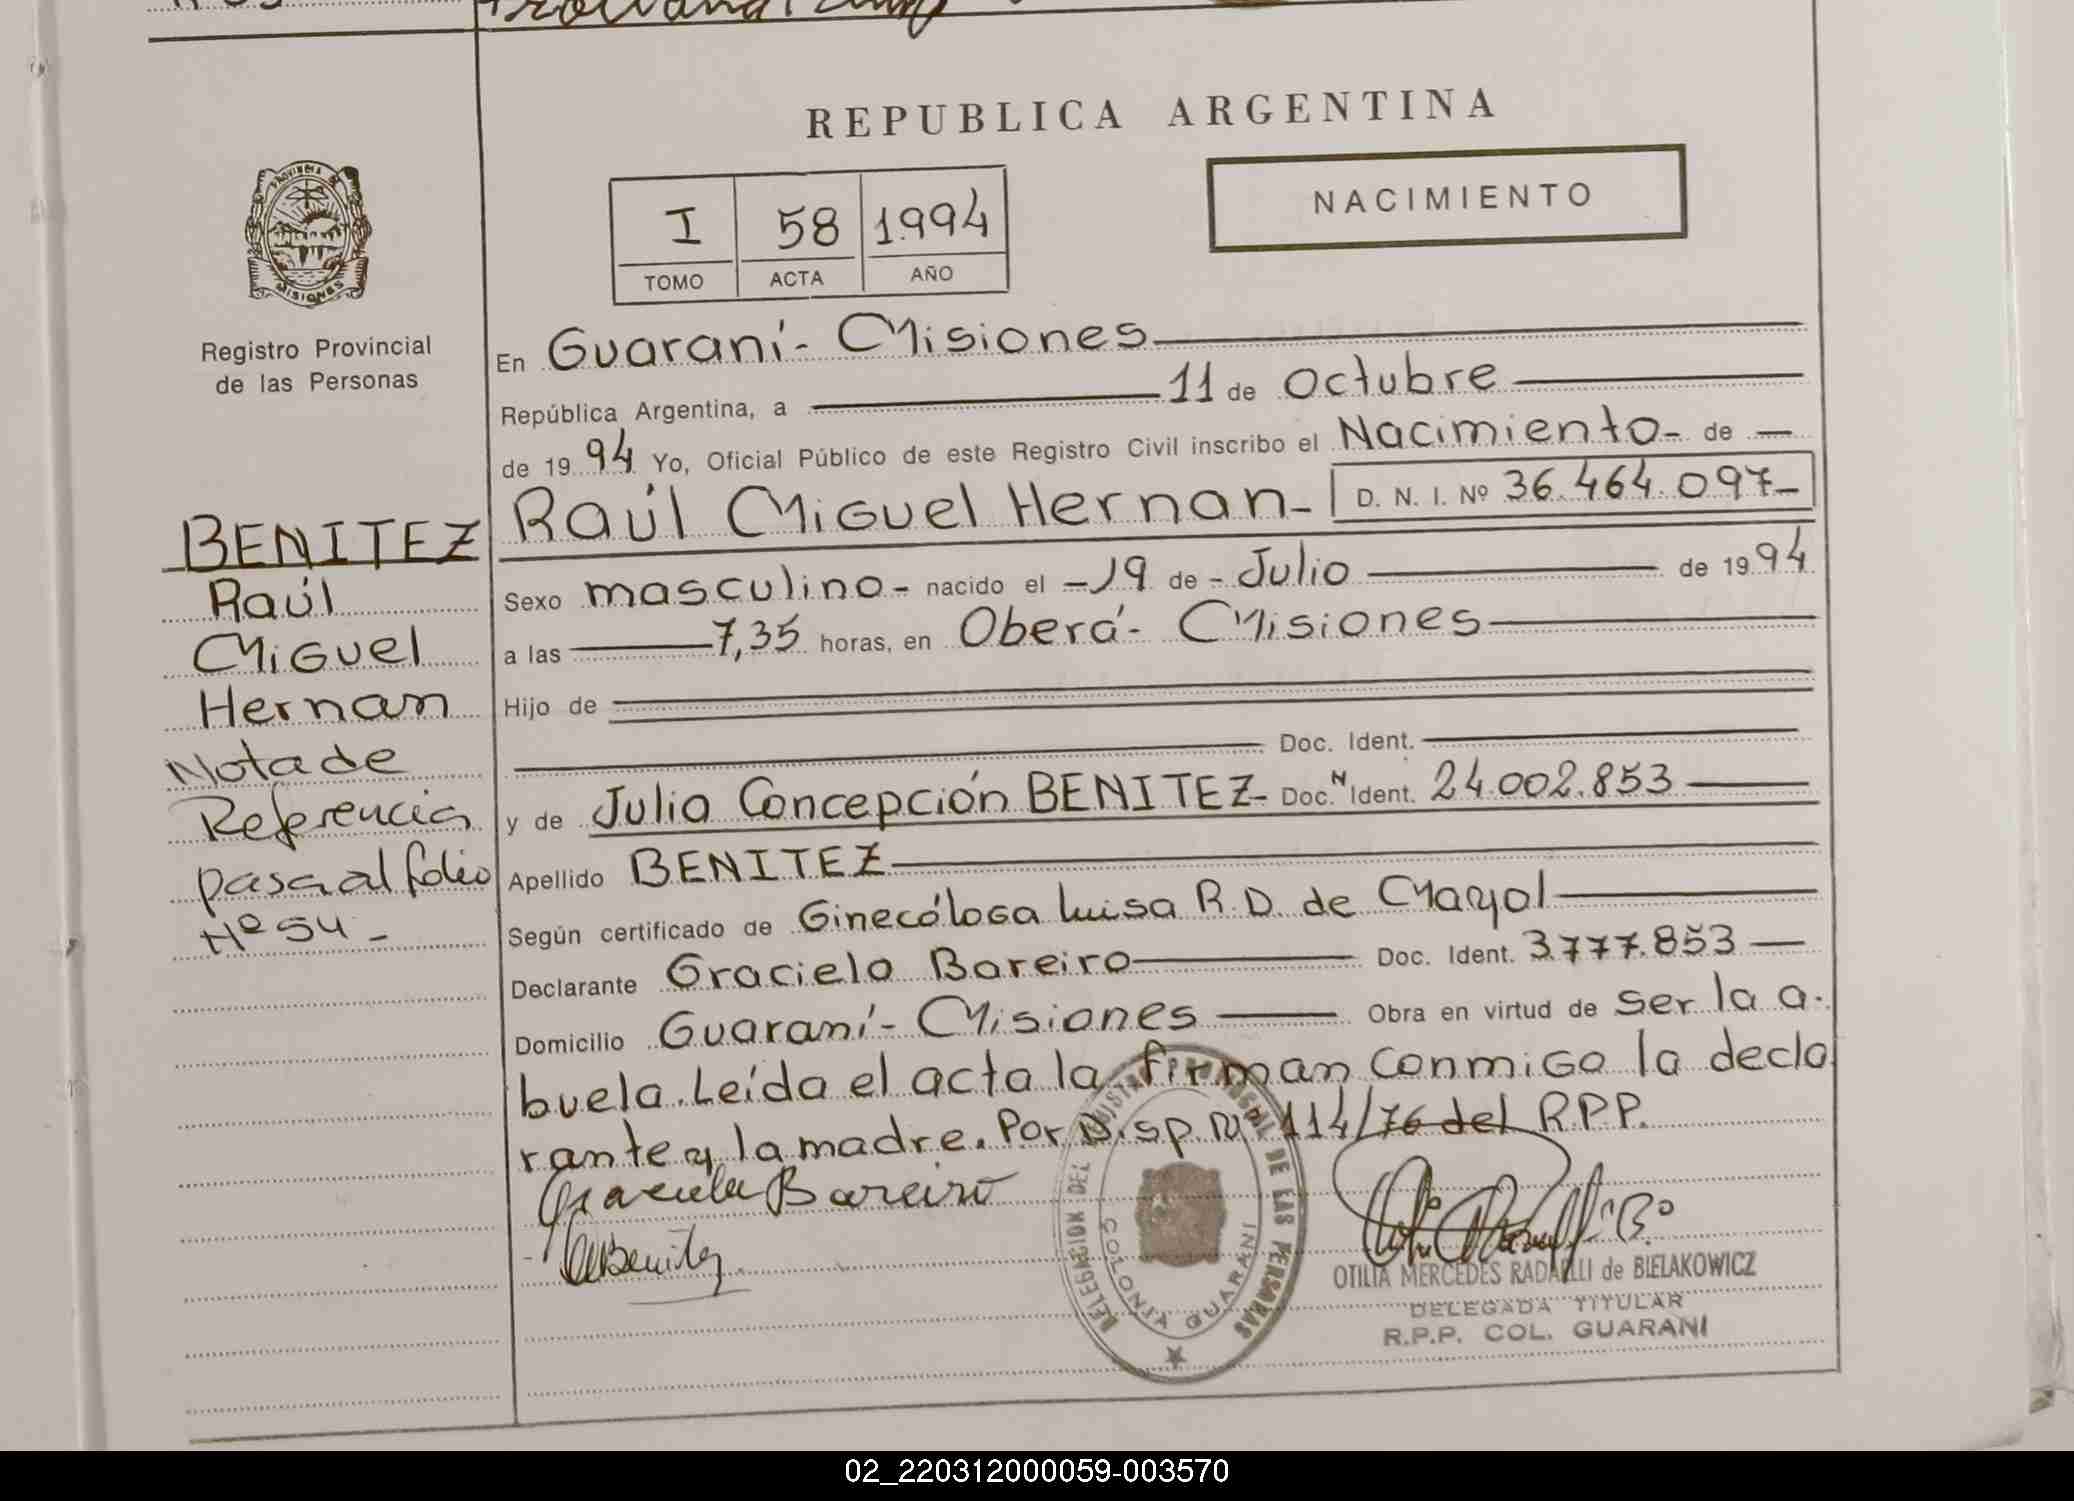 REPUBLICA ARGENTINA
PROVINCIA DE
MISIONES
Registro Provincial
de las Personas
I 58 1994
TOMO ACTA AÑO
NACIMIENTO
En Guaraní - Misiones
República Argentina, a 11 de Octubre
de 1994 Yo, Oficial Público de este Registro Civil inscribo el Nacimiento - de
Raúl Miguel Hernan - D. N. I. Nº 36.464.097-
Sexo masculino - nacido el - 19 de - Julio de 1994
a las 7,35 horas, en Oberá - Misiones
Hijo de
Doc. Ident.
y de Julia Concepción BENITEZ - Doc. N Ident. 24.002.853
Apellido BENITEZ
Según certificado de Ginecóloga Luisa R.D. de Mayol
Declarante Graciela Bareiro Doc. Ident. 3.777.853
Domicilio Guaraní - Misiones Obra en virtud de ser la a.
buela. Leída el acta la firman conmigo la decla
rante y la madre. Por Disp. Nº 114/76 del R.P.P.
Graciela Bareiro
Benitez
BENITEZ
Raúl
Miguel
Hernan
Nota de
Referencia
pasa al folio
Nº 54 -
DELEGACION DEL REGISTRO PROVINCIAL DE LAS PERSONAS
COLONIA GUARANI
OTILIA MERCEDES RADAELLI de BIELAKOWICZ
DELEGADA TITULAR
R.P.P. COL. GUARANI
02_220312000059-003570